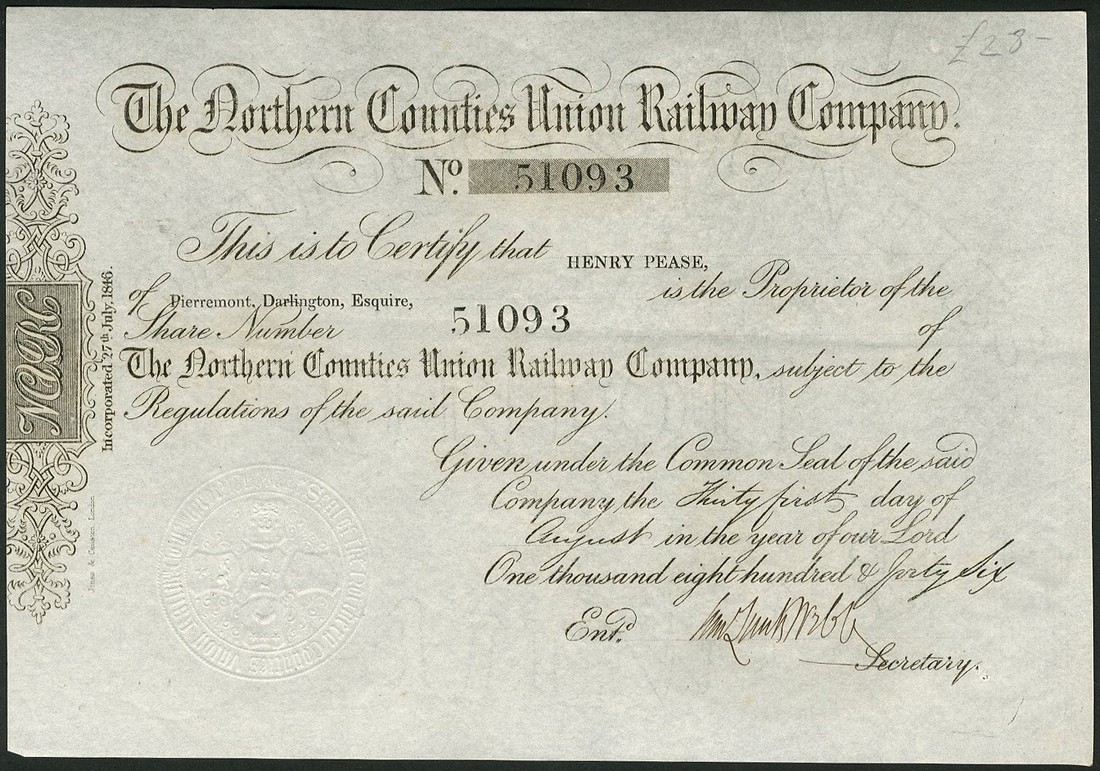 £28-
The Northern Counties Union Railway Company.
No. 51093
This is to Certify that HENRY PEASE,
of Pierremont, Darlington, Esquire, is the Proprietor of the
Share Number 51093 of
The Northern Counties Union Railway Company, subject to the
Regulations of the said Company.
Given under the Common Seal of the said
Company the Thirty first day of
August in the year of our Lord
One thousand eight hundred & forty Six
Entd.
Secretary.
NCURC
Incorporated 27th July, 1846.
London